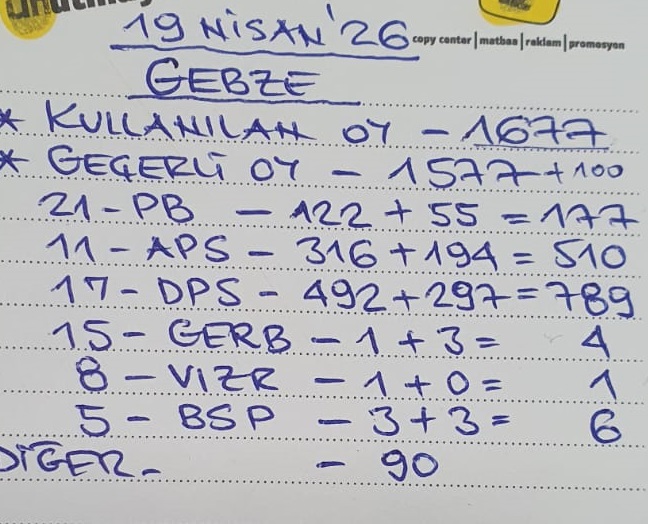 19 NİSAN'26
copy center | matbaa | reklam | promosyon
GEBZE
* KULLANILAN OY - 1677
* GEÇERLİ OY - 1577 + 100
21 - PB - 122 + 55 = 177
11 - APS - 316 + 194 = 510
17 - DPS - 492 + 297 = 789
15 - GERB - 1 + 3 = 4
8 - VIZR - 1 + 0 = 1
5 - BSP - 3 + 3 = 6
DİGER - - 90